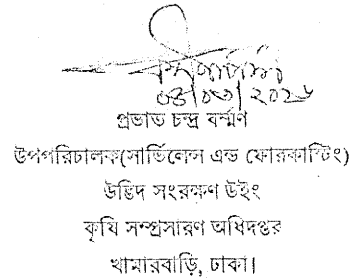 প্রভাত চন্দ্র বর্ম্মণ
উপপরিচালক(সার্ভিলেন্স এন্ড ফোরকাস্টিং)
উদ্ভিদ সংরক্ষণ উইং
কৃষি সম্প্রসারণ অধিদপ্তর
খামারবাড়ি, ঢাকা।